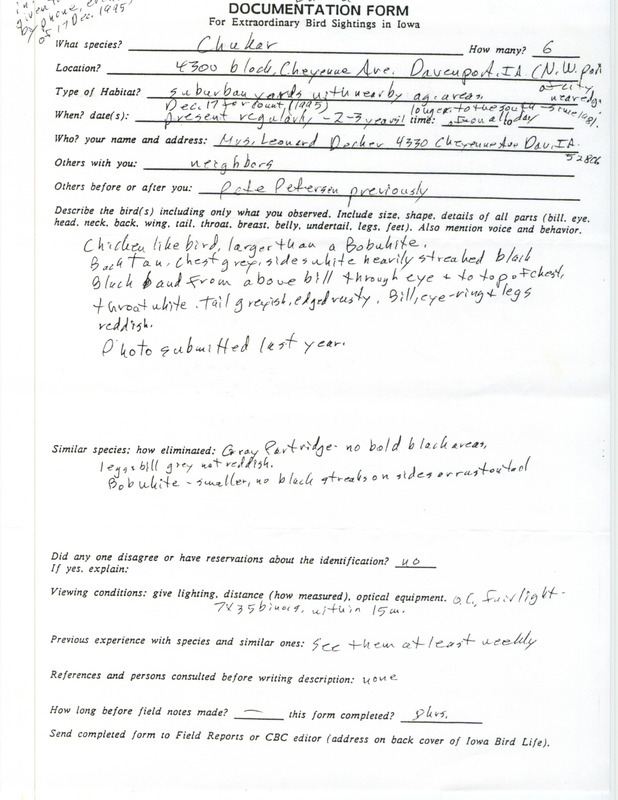 given
by phone,
of 17 Dec. 1995
DOCUMENTATION FORM
For Extraordinary Bird Sightings in Iowa
What species? Chukar How many? 6
Location? 4300 block, Cheyenne Ave. Davenport, IA (N.W. part
of city,
Type of Habitat? suburban yards with nearby ag. areas.
near edge
Dec. 17 for count, (1995) longer to the south - since 1981.
When? date(s): present regularly - 2-3 years! time: all day
Who? your name and address: Mrs. Leonard Decker 4330 Cheyenne Ave Dav. IA.
52806
Others with you: neighbors
Others before or after you: Pete Petersen previously
Describe the bird(s) including only what you observed. Include size, shape, details of all parts (bill, eye,
head, neck, back, wing, tail, throat, breast, belly, undertail, legs, feet). Also mention voice and behavior.
Chicken like bird, larger than a Bobwhite.
Back Tan, chest grey, sides white heavily streaked black
Black band from above bill through eye & to top of chest,
throat white. tail greyish, edged rusty. Bill, eye-ring & legs
reddish.
Photo submitted last year.
Similar species; how eliminated: Gray Partridge - no bold black areas,
legs & bill grey not reddish.
Bobwhite - smaller, no black streaks on sides or rusty tail
Did any one disagree or have reservations about the identification? no
If yes, explain:
Viewing conditions: give lighting, distance (how measured), optical equipment. O.C, fair light -
7X35 binocs, within 15m.
Previous experience with species and similar ones: See them at least weekly
References and persons consulted before writing description: none
How long before field notes made? — this form completed? 8hrs.
Send completed form to Field Reports or CBC editor (address on back cover of Iowa Bird Life).